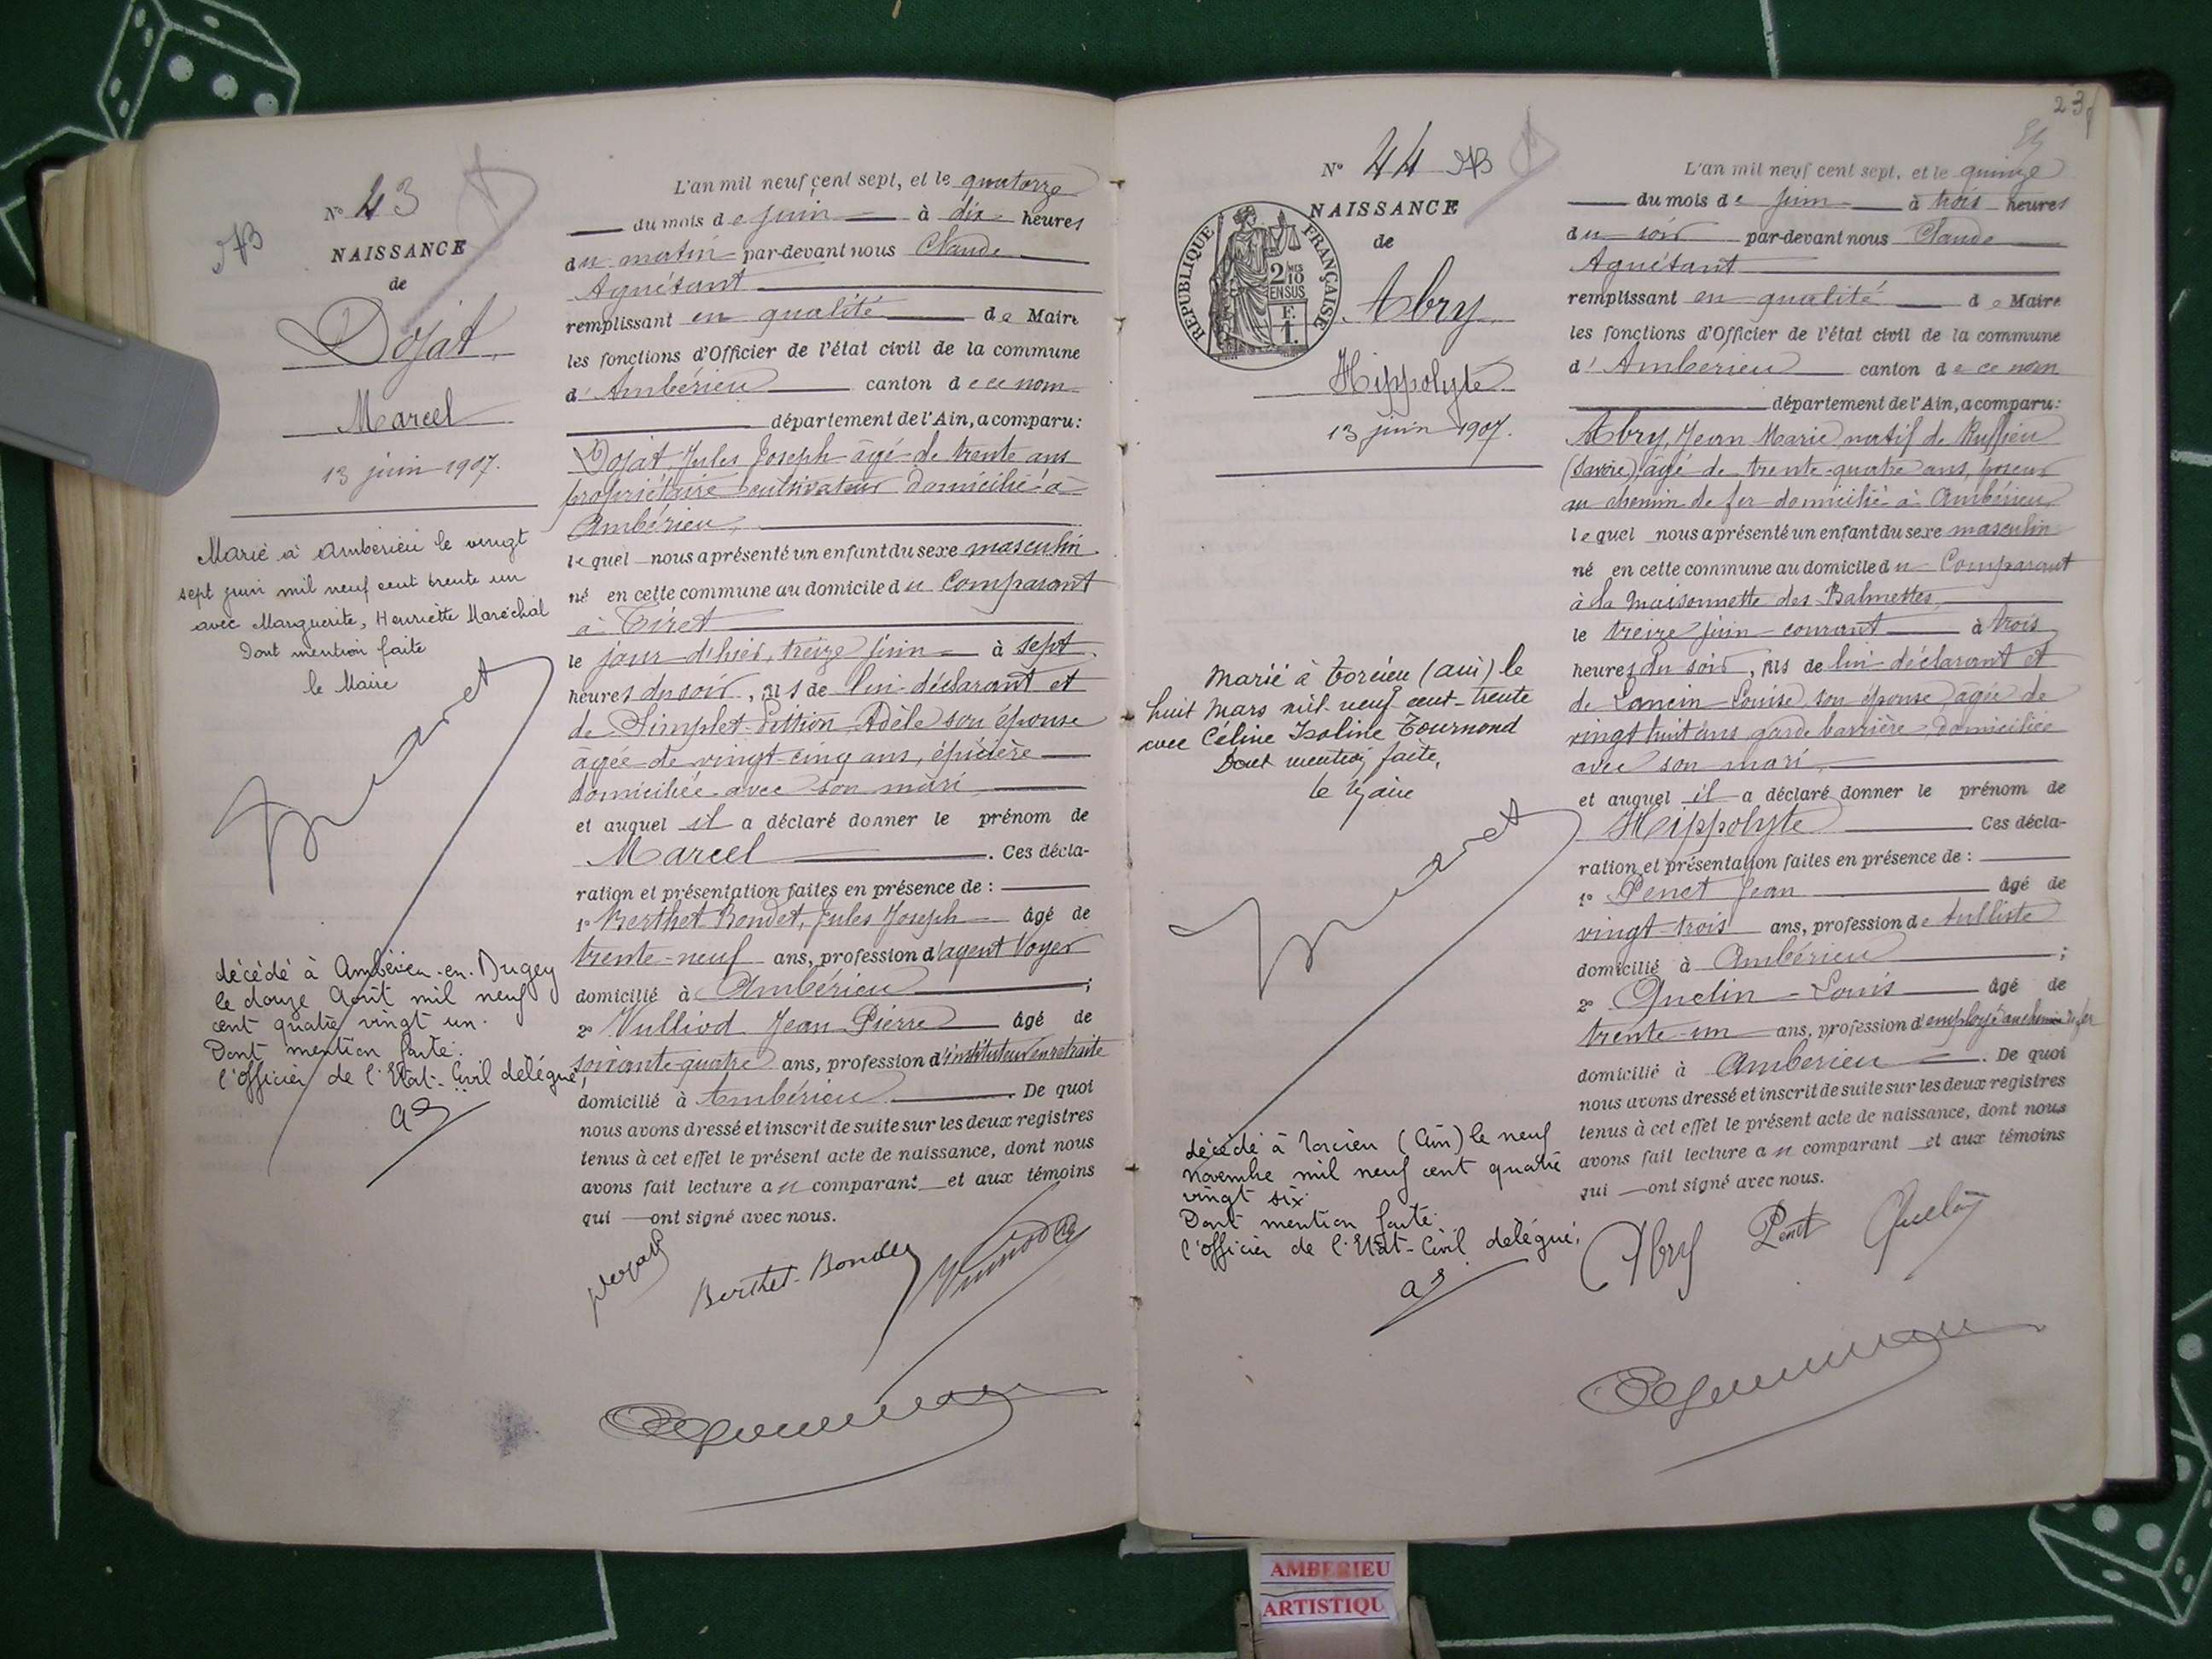 N° 43
NAISSANCE
de
Dojat
Marcel
13 juin 1907.
Marié à Ambérieu le vingt
sept juin mil neuf cent trente un
avec Marguerite, Henriette Maréchal
Dont mention faite
le Maire
décédé à Ambérieu-en-Bugey
le douze Août mil neuf
cent quatre vingt un.
Dont mention faite.
l'officier de l'Etat-Civil délégué,
L'an mil neuf cent sept, et le quatorze
du mois de juin à dix heures
du matin par-devant nous Claude
Aguétant
remplissant en qualité de Maire
les fonctions d'Officier de l'état civil de la commune
d'Ambérieu canton de ce nom
département de l'Ain, a comparu:
Dojat, Jules Joseph âgé de trente ans
propriétaire cultivateur domicilié à
Ambérieu,
lequel nous a présenté un enfant du sexe masculin
né en cette commune au domicile du Comparant
à Tiret
le jour d'hier, treize juin à sept
heures du soir, fils de lui déclarant et
de Simplet-Pittion Adèle son épouse
âgée de vingt-cinq ans, épicière
domiciliée avec son mari
et auquel il a déclaré donner le prénom de
Marcel . Ces décla-
ration et présentation faites en présence de :
1° Berthet-Bondet, Jules Joseph âgé de
trente-neuf ans, profession d'agent Voyer
domicilié à Ambérieu ;
2° Vulliod Jean Pierre âgé de
soixante-quatre ans, profession d'instituteur en retraite
domicilié à Ambérieu . De quoi
nous avons dressé et inscrit de suite sur les deux registres
tenus à cet effet le présent acte de naissance, dont nous
avons fait lecture au comparant et aux témoins
qui ont signé avec nous.
Dojat Berthet-Bondet Vulliod
23
N° 44
NAISSANCE
de
RÉPUBLIQUE FRANÇAISE
2 MES
10
EN SUS
F.
1.
Abry
Hippolyte
13 juin 1907.
Marié à Torcieu (ain) le
huit Mars mil neuf cent-trente
avec Céline Isoline Tournond
Dont mention faite,
le Maire
décédé à Torcieu (Ain) le neuf
novembre mil neuf cent quatre
vingt six.
Dont mention faite.
l'officier de l'Etat-Civil délégué,
L'an mil neuf cent sept, et le quinze
du mois de juin à trois heures
du soir par-devant nous Claude
Aguétant
remplissant en qualité de Maire
les fonctions d'Officier de l'état civil de la commune
d'Ambérieu canton de ce nom
département de l'Ain, a comparu:
Abry, Jean Marie, natif de Ruffieu
(Savoie) âgé de trente-quatre ans, poseur
au chemin de fer domicilié à Ambérieu
lequel nous a présenté un enfant du sexe masculin
né en cette commune au domicile du Comparant
à la maisonnette des Balmettes
le treize juin courant à trois
heures du soir, fils de lui déclarant et
de Lancin Louise, son épouse, âgée de
vingt huit ans, garde barrière, domiciliée
avec son mari,
et auquel il a déclaré donner le prénom de
Hippolyte Ces décla-
ration et présentation faites en présence de :
1° Penet Jean âgé de
vingt trois ans, profession de tulliste
domicilié à Ambérieu ;
2° Quelin-Louis âgé de
trente-un ans, profession d'employé au chemin de fer
domicilié à Amberieu . De quoi
nous avons dressé et inscrit de suite sur les deux registres
tenus à cet effet le présent acte de naissance, dont nous
avons fait lecture au comparant et aux témoins
qui ont signé avec nous.
Abry Penet Quelin
AMBERIEU
ARTISTIQU